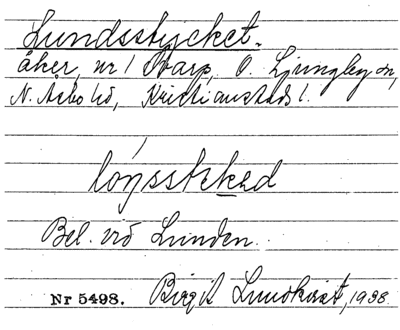 Lundsstycket.
åker, nr 1 Ovarp, Ö. Ljungby sn,
N. Åsbo hd, Kristianstads l.
Bel. vid Lunden.
Nr 5498. Birgit Lundkvist, 1938